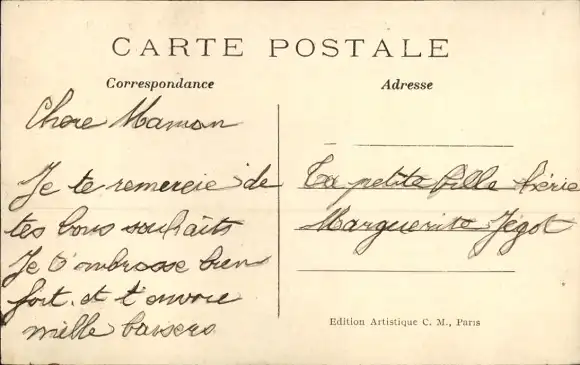 CARTE POSTALE
Correspondance
Adresse
Chere Maman
Je te remercie de
tes bons souhaits
Je t'embrasse bien
fort et t'envoie
mille baisers
Ta petite fille chérie
Marguerite Jégot
Edition Artistique C. M., Paris